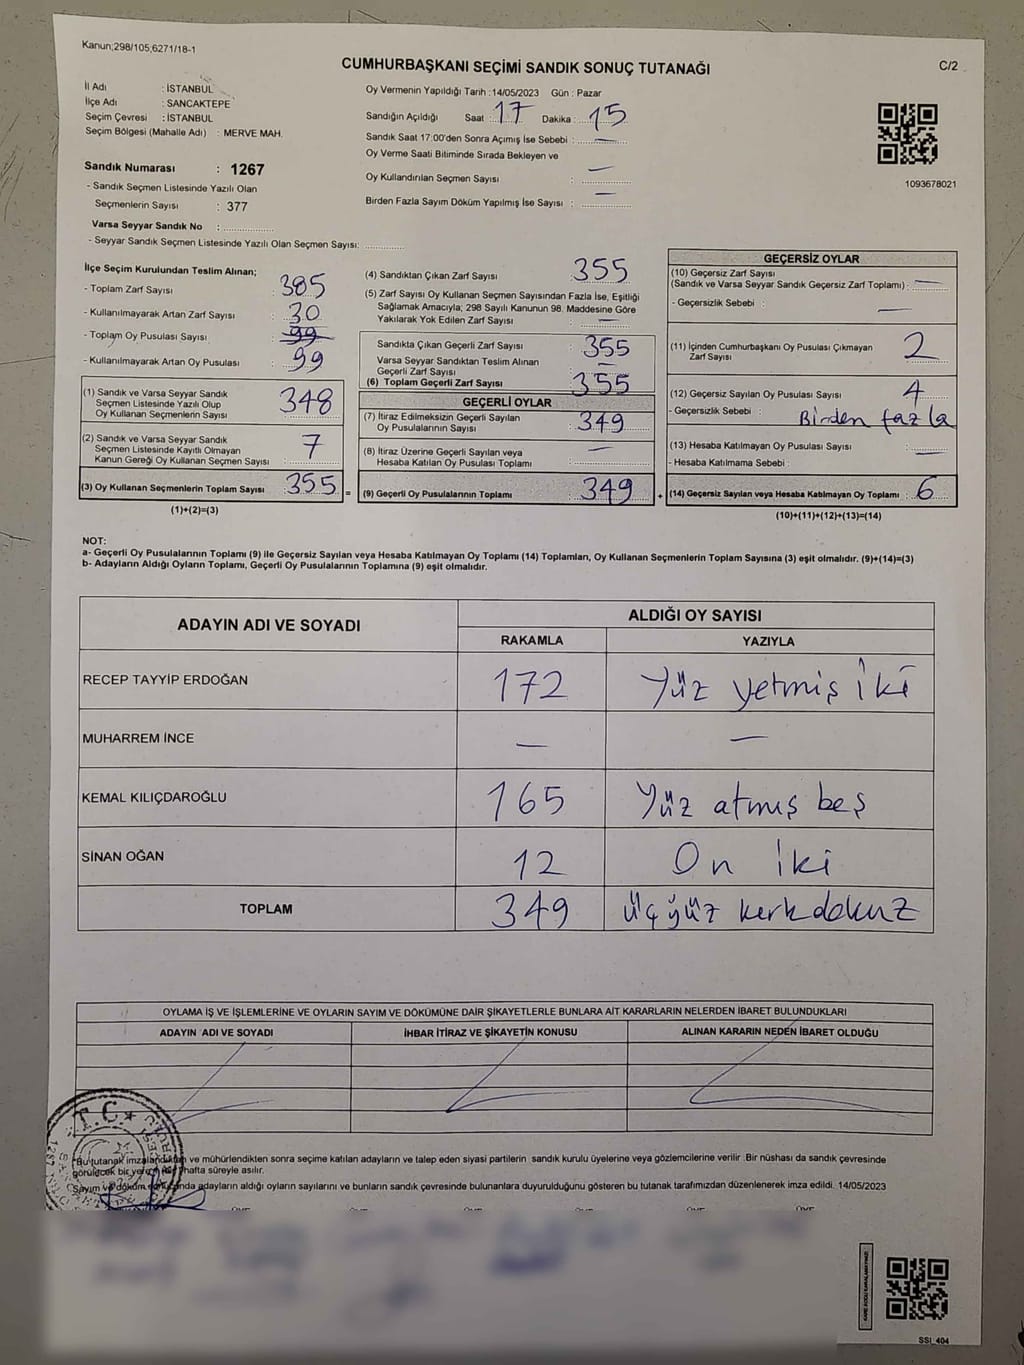 Kanun;298/105,6271/18-1
C/2
CUMHURBAŞKANI SEÇİMİ SANDIK SONUÇ TUTANAĞI
İl Adı : İSTANBUL
İlçe Adı : SANCAKTEPE
Seçim Çevresi : İSTANBUL
Seçim Bölgesi (Mahalle Adı) : MERVE MAH.
Sandık Numarası : 1267
- Sandık Seçmen Listesinde Yazılı Olan
Seçmenlerin Sayısı : 377
Varsa Seyyar Sandık No :
- Seyyar Sandık Seçmen Listesinde Yazılı Olan Seçmen Sayısı:
Oy Vermenin Yapıldığı Tarih :14/05/2023 Gün : Pazar
Sandığın Açıldığı Saat : 17 Dakika : 15
Sandık Saat 17:00'den Sonra Açımış İse Sebebi : —
Oy Verme Saati Bitiminde Sırada Bekleyen ve
Oy Kullandırılan Seçmen Sayısı : —
Birden Fazla Sayım Döküm Yapılmış İse Sayısı : —
1093678021
İlçe Seçim Kurulundan Teslim Alınan;
- Toplam Zarf Sayısı : 385
- Kullanılmayarak Artan Zarf Sayısı : 30
- Toplam Oy Pusulası Sayısı : 99
- Kullanılmayarak Artan Oy Pusulası : 99
(1) Sandık ve Varsa Seyyar Sandık
Seçmen Listesinde Yazılı Olup
Oy Kullanan Seçmenlerin Sayısı : 348
(2) Sandık ve Varsa Seyyar Sandık
Seçmen Listesinde Kayıtlı Olmayan
Kanun Gereği Oy Kullanan Seçmen Sayısı : 7
(3) Oy Kullanan Seçmenlerin Toplam Sayısı : 355 =
(1)+(2)=(3)
(4) Sandıktan Çıkan Zarf Sayısı : 355
(5) Zarf Sayısı Oy Kullanan Seçmen Sayısından Fazla İse, Eşitliği
Sağlamak Amacıyla; 298 Sayılı Kanunun 98. Maddesine Göre
Yakılarak Yok Edilen Zarf Sayısı : —
Sandıkta Çıkan Geçerli Zarf Sayısı : 355
Varsa Seyyar Sandıktan Teslim Alınan
Geçerli Zarf Sayısı : —
(6) Toplam Geçerli Zarf Sayısı : 355
GEÇERLİ OYLAR
(7) İtiraz Edilmeksizin Geçerli Sayılan
Oy Pusulalarının Sayısı : 349
(8) İtiraz Üzerine Geçerli Sayılan veya
Hesaba Katılan Oy Pusulası Toplamı : —
(9) Geçerli Oy Pusulalarının Toplamı : 349 +
GEÇERSİZ OYLAR
(10) Geçersiz Zarf Sayısı
(Sandık ve Varsa Seyyar Sandık Geçersiz Zarf Toplamı) : —
- Geçersizlik Sebebi : —
(11) İçinden Cumhurbaşkanı Oy Pusulası Çıkmayan
Zarf Sayısı : 2
(12) Geçersiz Sayılan Oy Pusulası Sayısı : 4
- Geçersizlik Sebebi : Birden fazla
(13) Hesaba Katılmayan Oy Pusulası Sayısı : —
- Hesaba Katılmama Sebebi :
(14) Geçersiz Sayılan veya Hesaba Katılmayan Oy Toplamı : 6
(10)+(11)+(12)+(13)=(14)
NOT:
a- Geçerli Oy Pusulalarının Toplamı (9) ile Geçersiz Sayılan veya Hesaba Katılmayan Oy Toplamı (14) Toplamları, Oy Kullanan Seçmenlerin Toplam Sayısına (3) eşit olmalıdır. (9)+(14)=(3)
b- Adayların Aldığı Oyların Toplamı, Geçerli Oy Pusulalarının Toplamına (9) eşit olmalıdır.
ADAYIN ADI VE SOYADI
ALDIĞI OY SAYISI
RAKAMLA YAZIYLA
RECEP TAYYİP ERDOĞAN 172 Yüz yetmiş iki
MUHARREM İNCE — —
KEMAL KILIÇDAROĞLU 165 Yüz atmış beş
SİNAN OĞAN 12 On iki
TOPLAM 349 üçyüz kerkdokuz
OYLAMA İŞ VE İŞLEMLERİNE VE OYLARIN SAYIM VE DÖKÜMÜNE DAİR ŞİKAYETLERLE BUNLARA AİT KARARLARIN NELERDEN İBARET BULUNDUKLARI
ADAYIN ADI VE SOYADI İHBAR İTİRAZ VE ŞİKAYETİN KONUSU ALINAN KARARIN NEDEN İBARET OLDUĞU
T.C.
*Bu tutanak imzalandıktan ve mühürlendikten sonra seçime katılan adayların ve talep eden siyasi partilerin sandık kurulu üyelerine veya gözlemcilerine verilir. Bir nüshası da sandık çevresinde
görülecek bir yere bir hafta süreyle asılır.
Sayım ve döküm sonucunda adayların aldığı oyların sayılarını ve bunların sandık çevresinde bulunanlara duyurulduğunu gösteren bu tutanak tarafımızdan düzenlenerek imza edildi. 14/05/2023
SSI_404